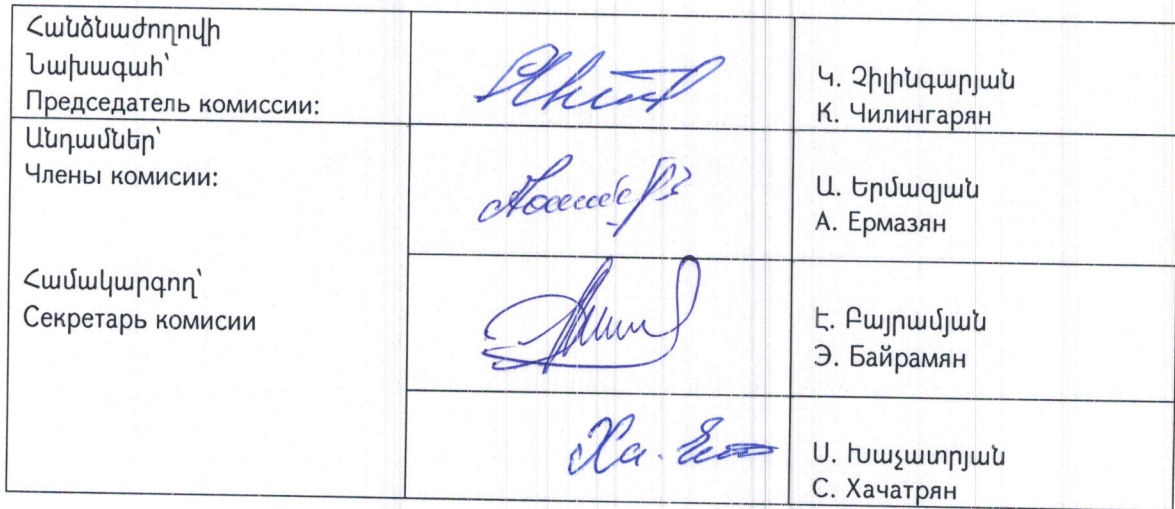 Հանձնաժողովի
Նախագահ՝
Председатель комиссии:
Կ. Չիլինգարյան
К. Чилингарян
Անդամներ՝
Члены комисии:
Ա. Երմազյան
А. Ермазян
Համակարգող՝
Секретарь комисии
Է. Բայրամյան
Э. Байрамян
Ս. Խաչատրյան
С. Хачатрян